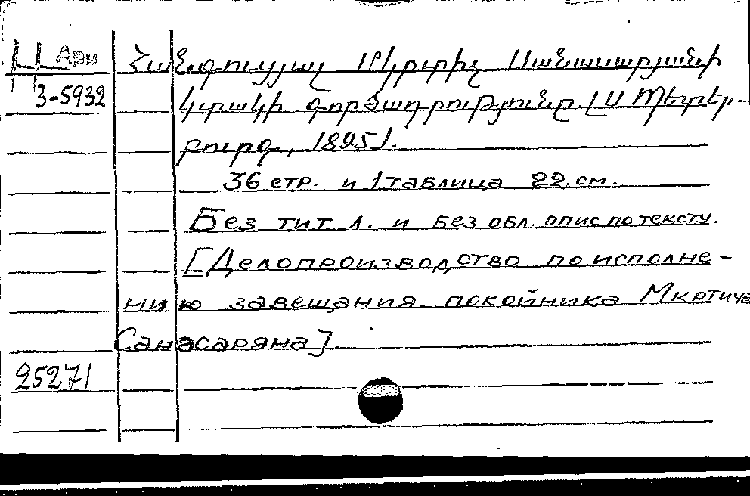 Арм
3-5932
Հանգուցյալ Մկրտիչ Սանասարյանի
կտակի գործադրությունը [Ս Պետեր-
բուրգ, 1895].
36 стр. и 1 таблица 22 см.
Без тит л. и без обл. опис по тексту.
[Делопроизводство по исполне-
нию завещания покойника Мкртича
Санасаряна].
25271